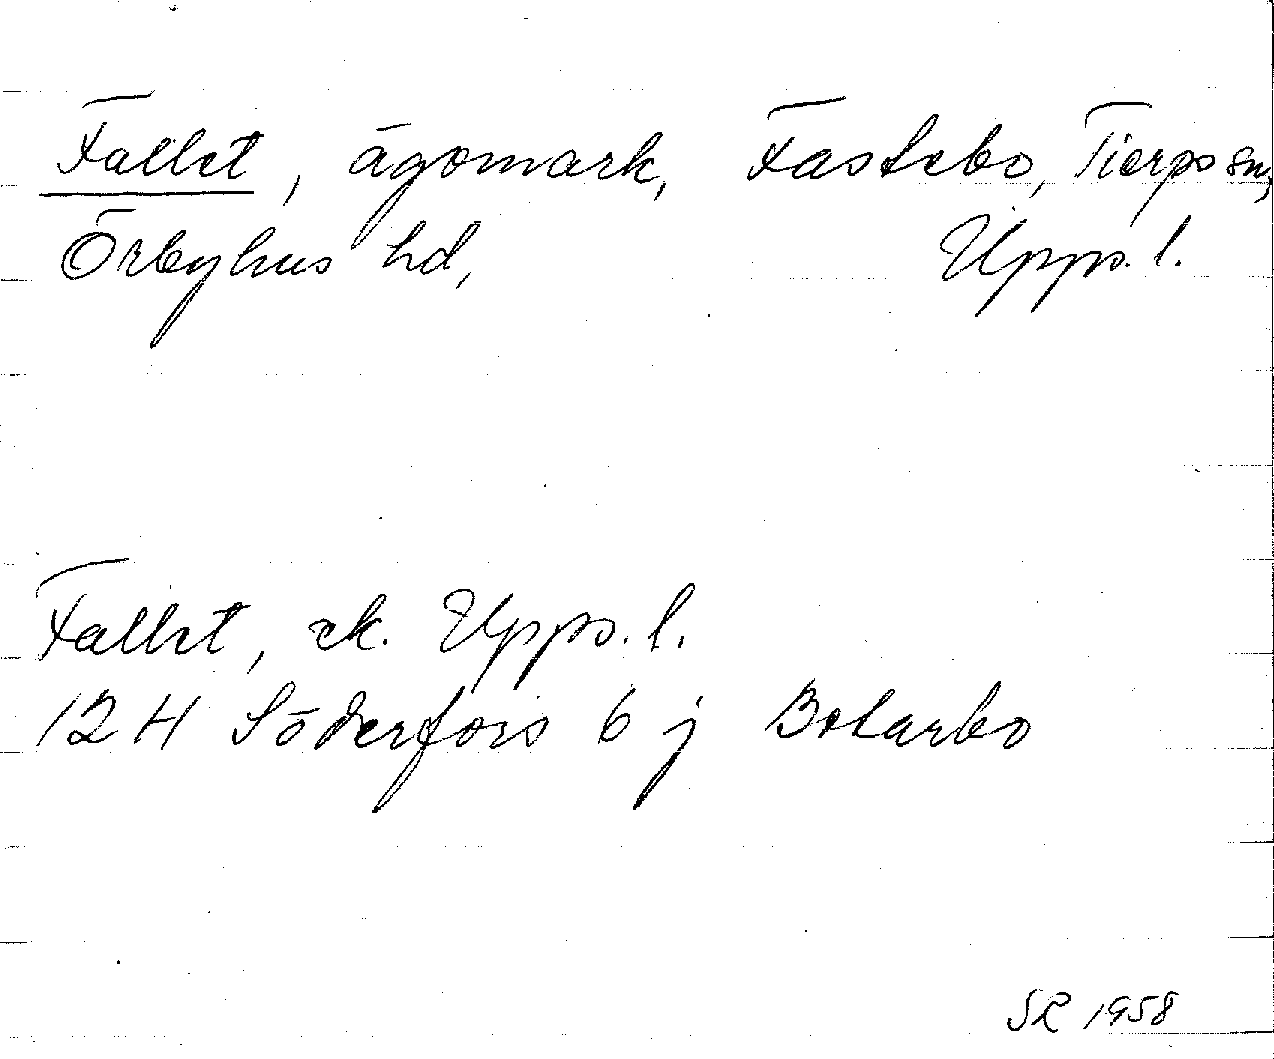 Fallet, ägomark, Fastebo, Tierps sn,
Örbyhus hd, Upps. l.
Fallet, ek. Upps. l.
12 H Söderfors 6 j Botarbo
SR 1958